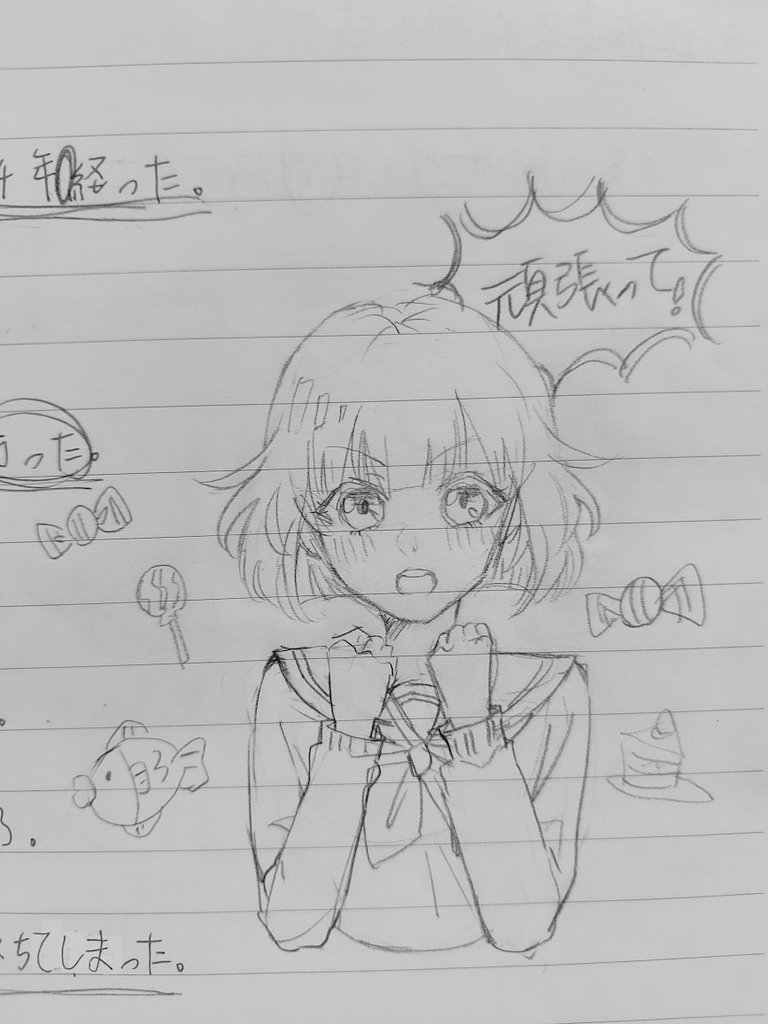 年経った。
頑張って!
った。
る.
ちてしまった。